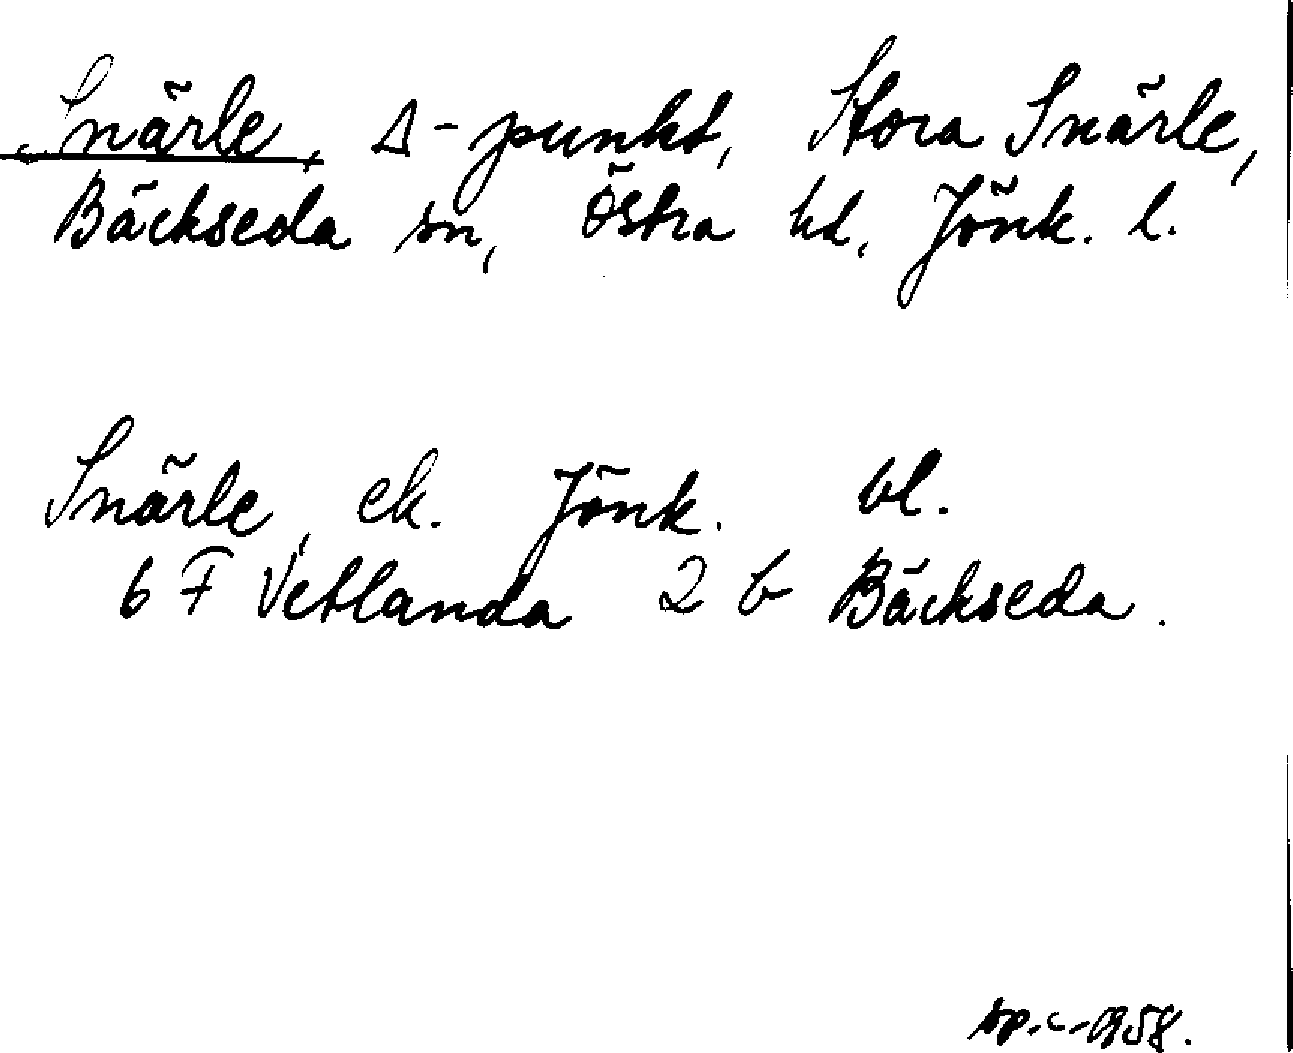 Snärle, Δ-punkt, Stora Snärle,
Bäckseda sn, Östra hd, Jönk. l.
Snärle, ek. Jönk. bl.
6 F Vetlanda 2 b Bäckseda.
1958.